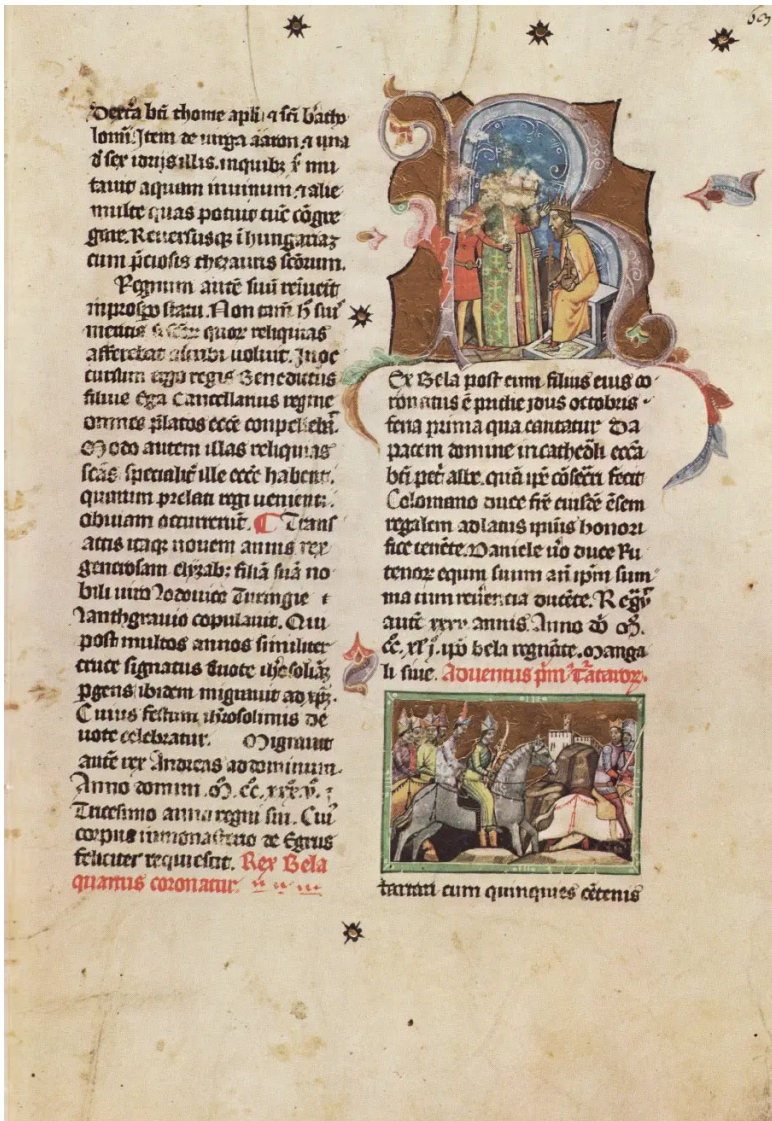 63
Dextra bti thome apli ⁊ sci bartho
lomi. Item de uirga aaron ⁊ una
d sex idrijs illis. inquibꝫ xp̄ mu
tauit aquam in uinum ⁊ alie
multe quas potuit tūc cōgre
gare. Reuersusqꝫ ī hungariaꝫ
cum p̄ciosis thezauris scōrum.
Regnum autē suū inuenit
in prospo statu. Non tam h̄ sue
mentis quoꝝ reliquias
afferebat ascribi uoluit. In oc
cursum ergo regis Benedictus
filius Cancellarius regine
omnes p̄latos ecce conpellebat.
Modo autem illas reliquias
scās specialit̄ ille ecce habent.
quarum prelati regi uenienti
obuiam occurrerūt. Trans
actis itaqꝫ nouem annis rex
generosam elyzab filiā suā no
bili uiro Lodouico Turingie
lanthgrauio copulauit. Qui
post multos annos similiter
cruce signatus deuote
p̄gens ibidem migrauit ad xp̄m.
Cuius festum iherosolimis de
uote celebratur. Migrauit
autē rex Andreas ad dominum.
Anno domini. M. cc. xxx. v.
Tricesimo anno regni sui. Cuiꝰ
corpus in monasterio de Egrus
feliciter requiescit. Rex Bela
quartus coronatur.
R
Ex Bela post eum filius eius co
ronatus ē pridie idus octobris
feria prima qua cantatur Da
pacem domine in cathedrali eccā
bti pet̄ albe. quā ip̄e cōsecrī fecit
Colomano duce fr̄e eiusdē ēsem
regalem ad latus ipsius honori
fice tenēte. Daniele uo duce Ru
tenoꝝ equm suum añ ip̄m sum
ma cum reuerencia ducēte. Regͣuit
autē xxxv annis. Anno dn̄i M.
cc. xlj. ip̄o bela regnāte. Manga
li siue. Aduentus p̄mꝰ Tartaroꝝ.
tartari cum quinquies cētenis